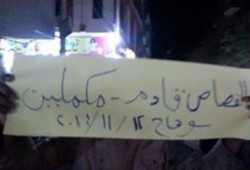 القصاص قادم - مكملين
سوهاج ١٢ / ١١ / ٢٠١٤